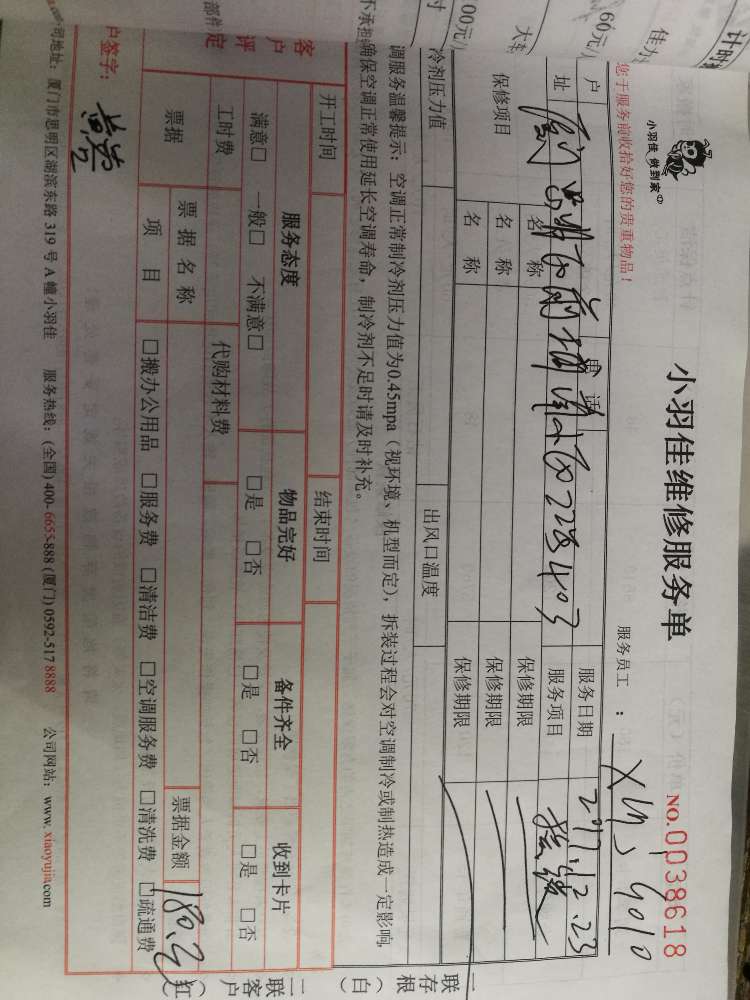 计时
佳办
60元/
大车
00元/
时
小羽佳 做到家
小羽佳维修服务单
NO.0038618
您于服务前收拾好您的贵重物品！
服务员工：
XMJ 4010
户
电话
服务日期
2017.12.23
址
服务项目
保修项目
名称
保修期限
名称
保修期限
名称
保修期限
冷剂压力值
出风口温度
调服务温馨提示：空调正常制冷剂压力值为0.45mpa（视环境、机型而定），拆装过程会对空调制冷或制热造成一定影响
确保空调正常使用延长空调寿命，制冷剂不足时请及时补充。
不承担
开工时间
结束时间
客户评定
服务态度
物品完好
备件齐全
收到卡片
满意□ 一般□ 不满意□
□是 □否
□是 □否
□是 □否
工时费
代购材料费
票据
票据名称
票据金额
180.元
项目
□搬办公用品 □服务费 □清洁费 □空调服务费 □清洗费 □疏通费
户签字：
司地址：厦门市思明区湖滨东路 319 号 A 幢小羽佳 服务热线：(全国) 400-6655-888 (厦门) 0592-517 8888 公司网站：www.xiaoyujia.com
一联存根（白）
二联客户（红）
部件